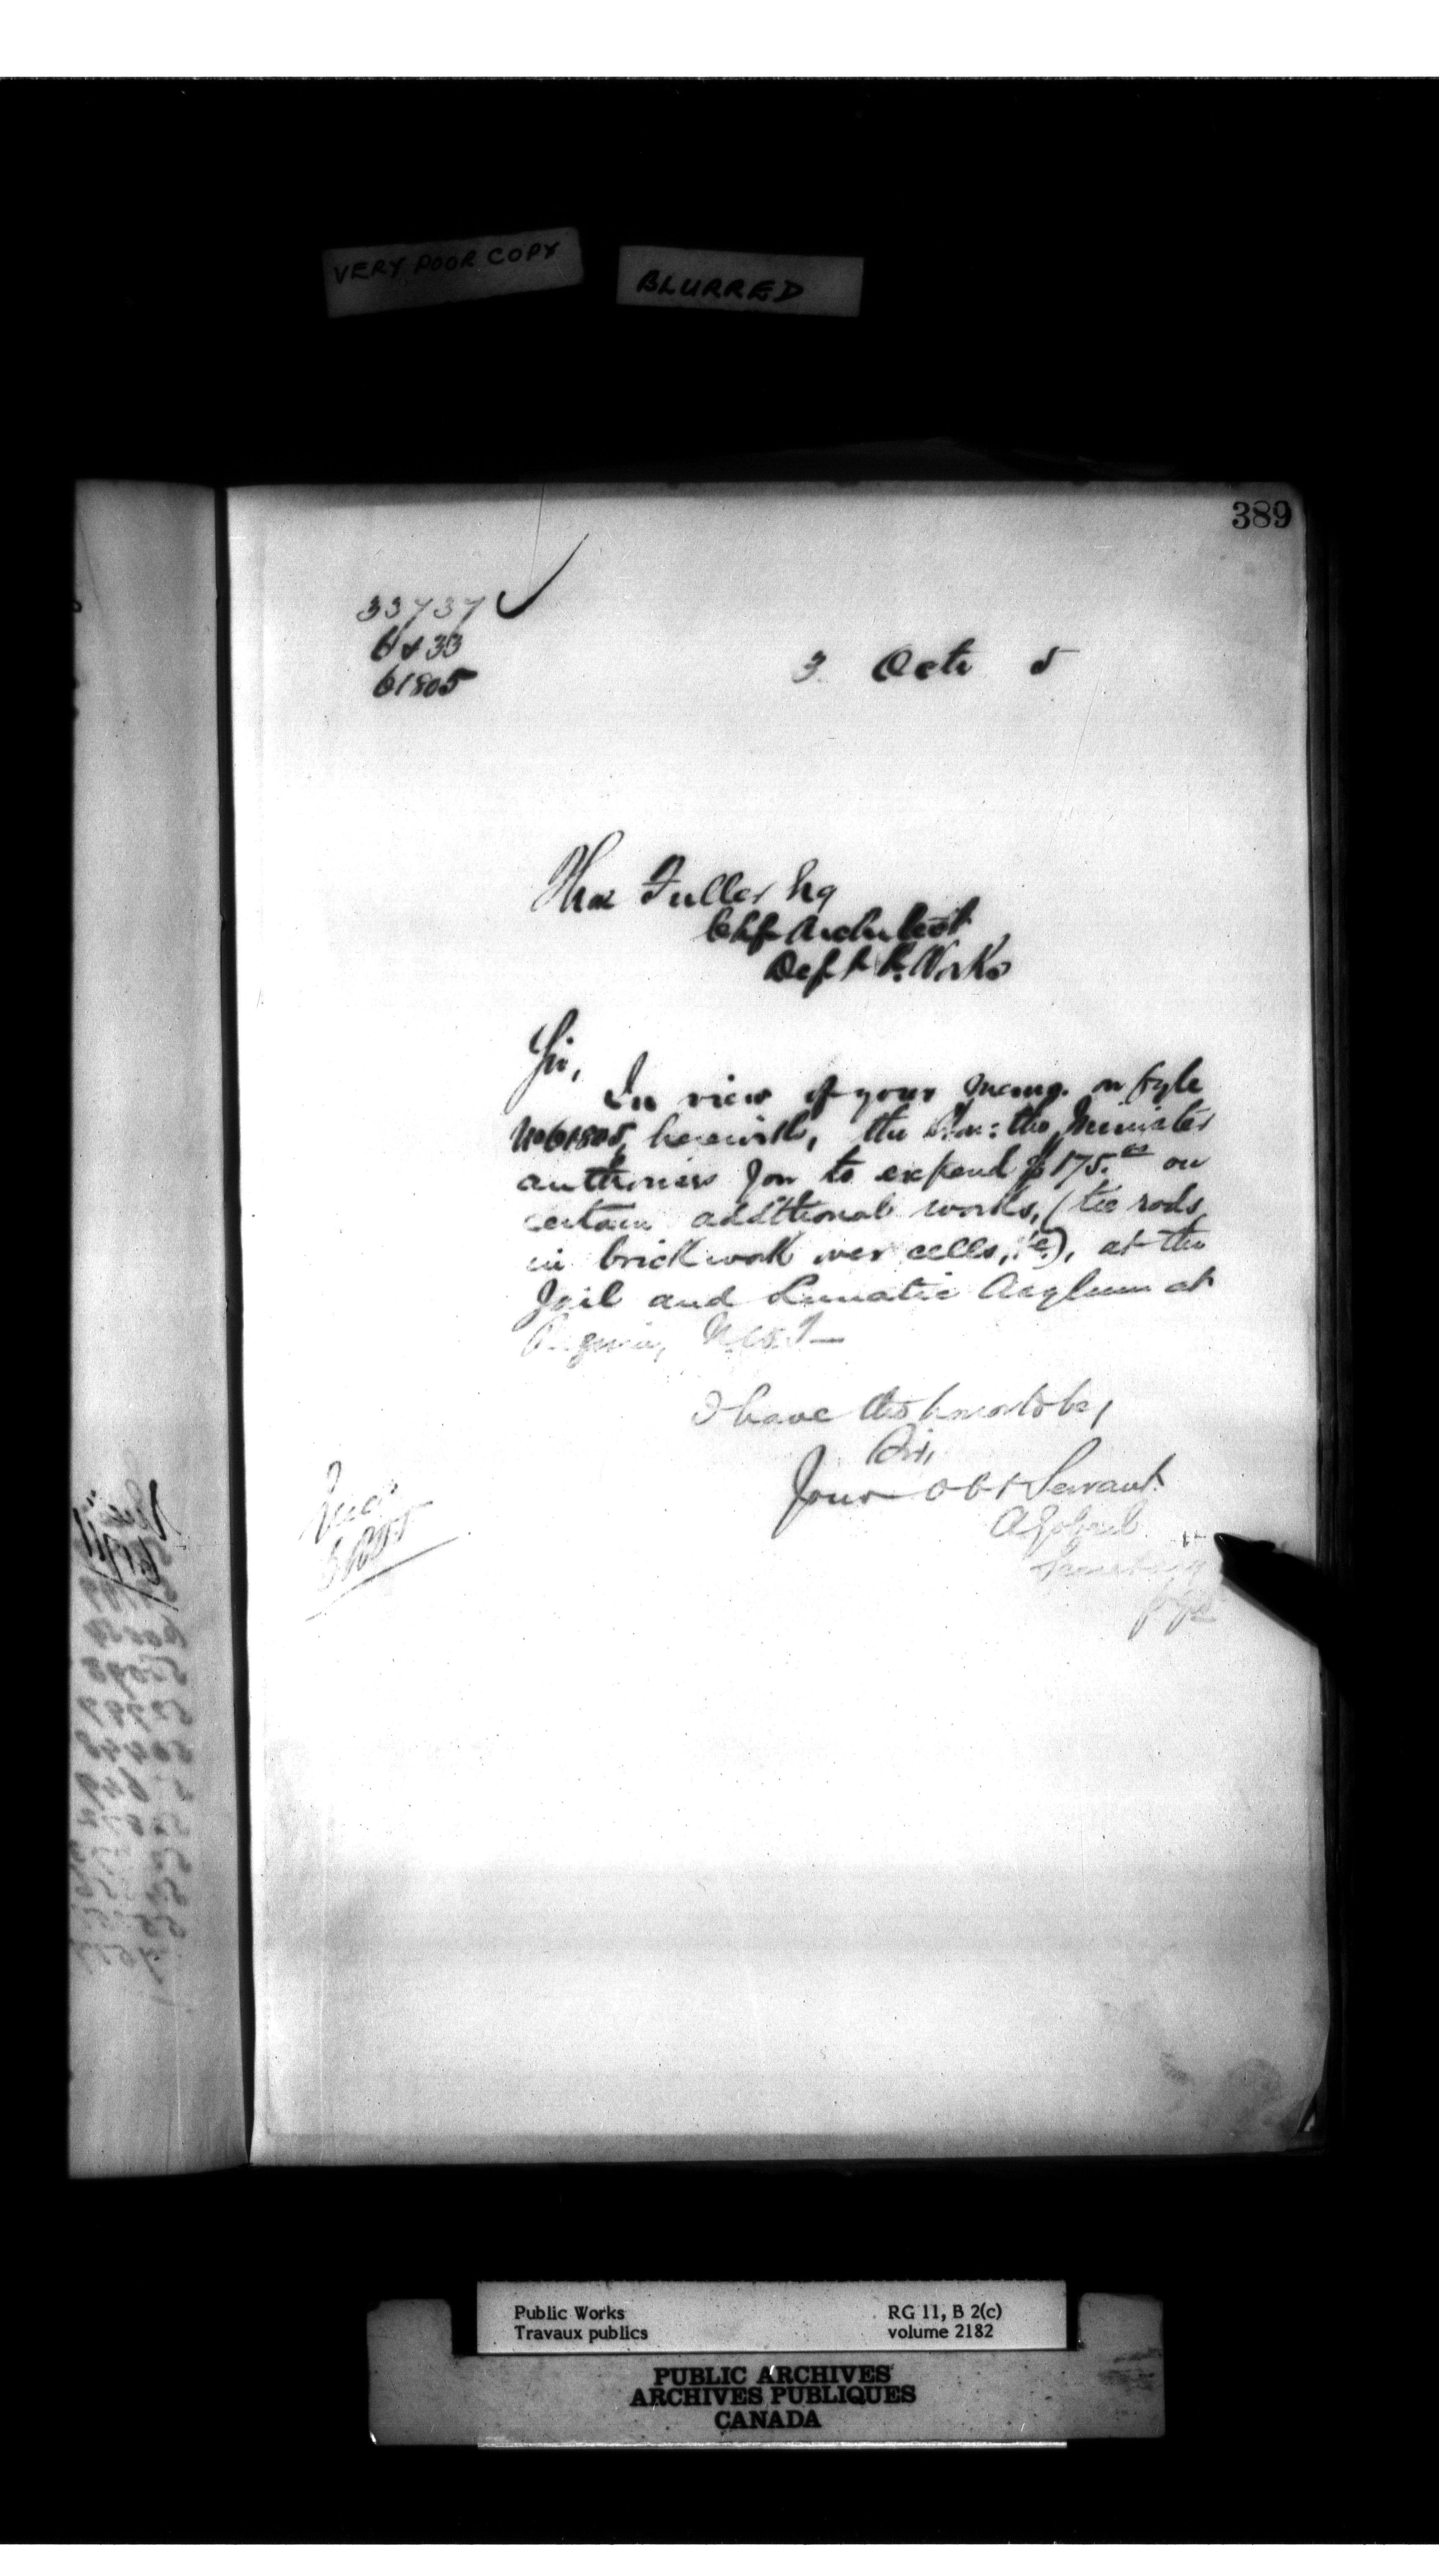 VERY POOR COPY
BLURRED
389
33737
61805
3 Octr 5
Thos Fuller Esq
Chf Architect
Dept P. Works
Sir,
In view of your memo. on fyle
No 61805, herewith, the Hon: the Minister
authorises you to expend $175.00 on
certain additional works, (tie rods
in brickwork over cells, &c), at the
Jail and Lunatic Asylum at
Regina, N.W.T—
I have the honor to be,
Sir,
Your Obt Servant.
A Gobeil
Secretary
Public Works
Travaux publics
RG 11, B 2(c)
volume 2182
PUBLIC ARCHIVES
ARCHIVES PUBLIQUES
CANADA